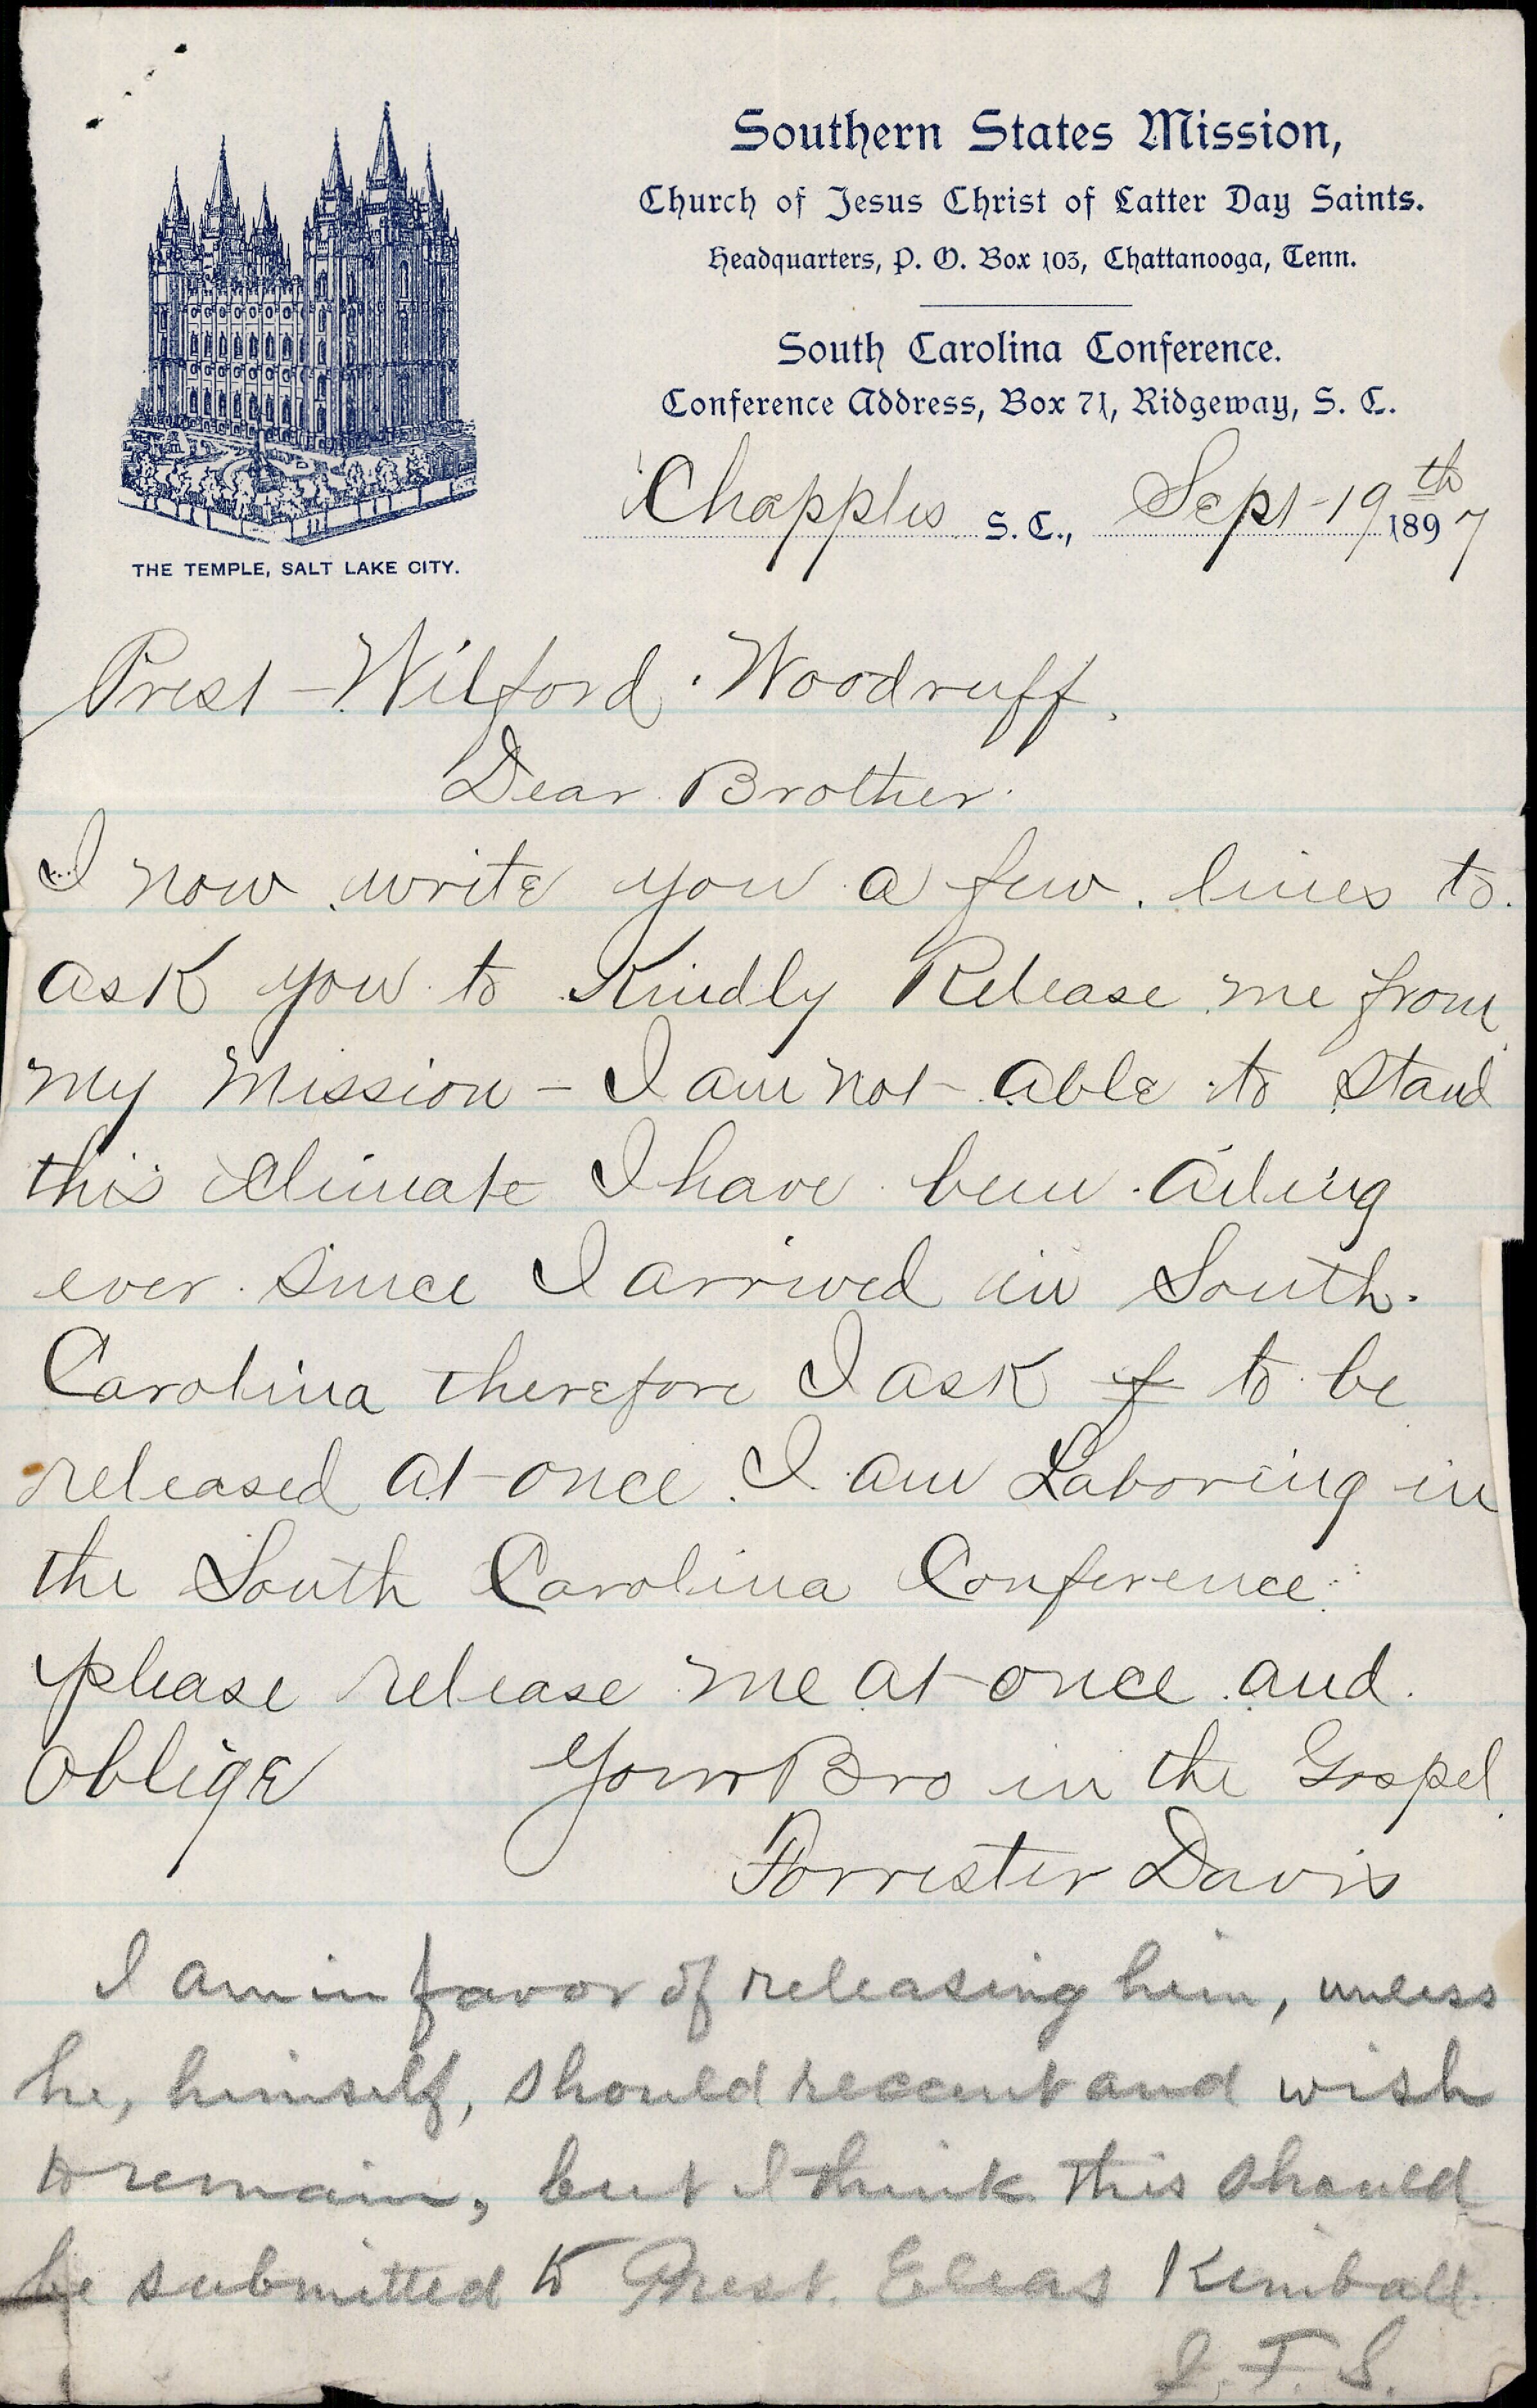 Southern States Mission,
Church of Jesus Christ of Latter Day Saints.
Headquarters, P. O. Box 103, Chattanooga, Tenn.
South Carolina Conference.
Conference Address, Box 71, Ridgeway, S. C.
Chapples S. C., Sept-19th 1897
THE TEMPLE, SALT LAKE CITY.
Prest-Wilford. Woodruff.
Dear Brother.
I now write you a few lines to
ask you to Kindly Release me from
my Mission - I am not able to Stand
this Climate I have been Ailing
ever Since I arrived in South
Carolina therefore I ask f to be
released at once. I am Laboring in
the South Carolina Conference
please release me at once and
oblige Your Bro in the Gospel
Forrester Davis
I am in favor of releasing him, unless
he, himself, should recant and wish
to remain, but I think this should
be submitted to Prest. Elias Kimball.
J. F. S.